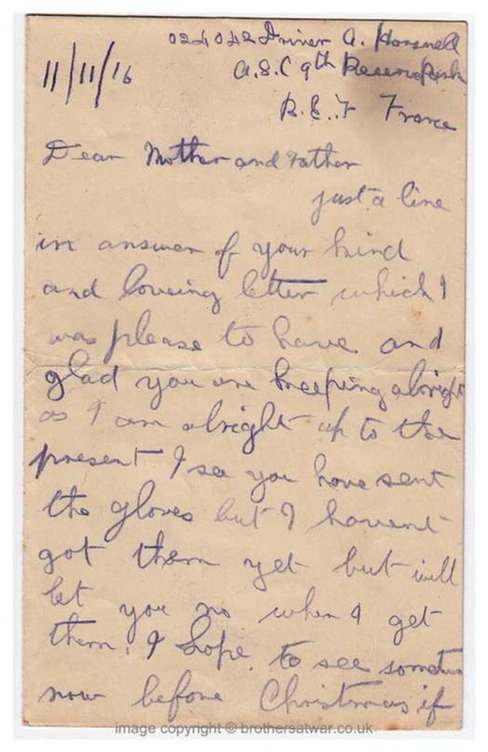 024042 Driver A. Horsnell
11/11/16
A.S.C 9th Reserve Park
B.E.F France
Dear Mother and Father
just a line
in answer of your kind
and loveing letter which I
was please to have and
glad you are keeping alright
as I am alright up to the
present I see you have sent
the gloves but I havent
got them yet but will
let you no when I get
them. I hope to see
now before Christmas if
image copyright © brothersatwar.co.uk